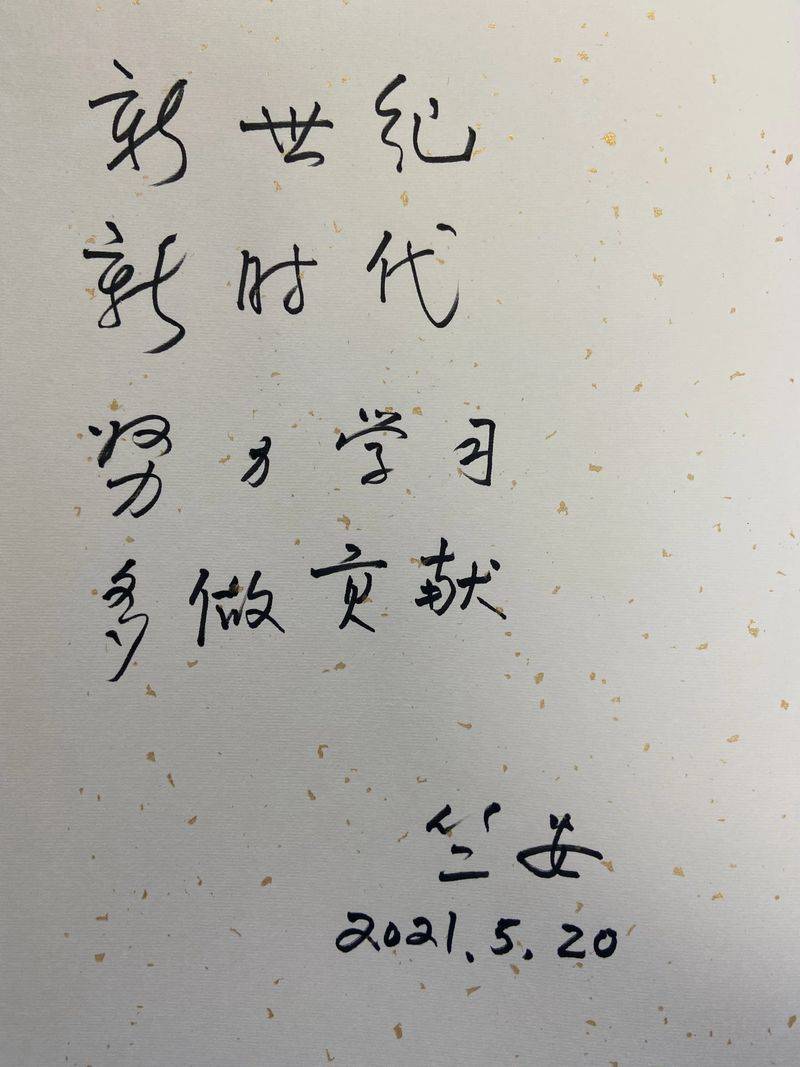 新世纪
新时代
努力学习
多做贡献
竺安
2021.5.20